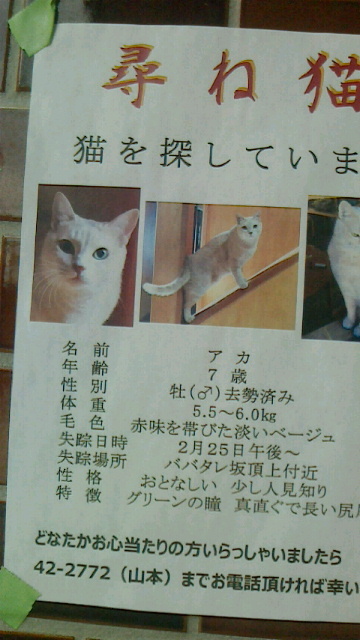 尋ね猫
猫を探していま
名前 アカ
年齢 7歳
性別 牡(♂)去勢済み
体重 5.5～6.0kg
毛色 赤味を帯びた淡いベージュ
失踪日時 2月25日午後～
失踪場所 ババタレ坂頂上付近
性格 おとなしい 少し人見知り
特徴 グリーンの瞳 真直ぐで長い尻
どなたかお心当たりの方いらっしゃいましたら
42-2772（山本）までお電話頂ければ幸い